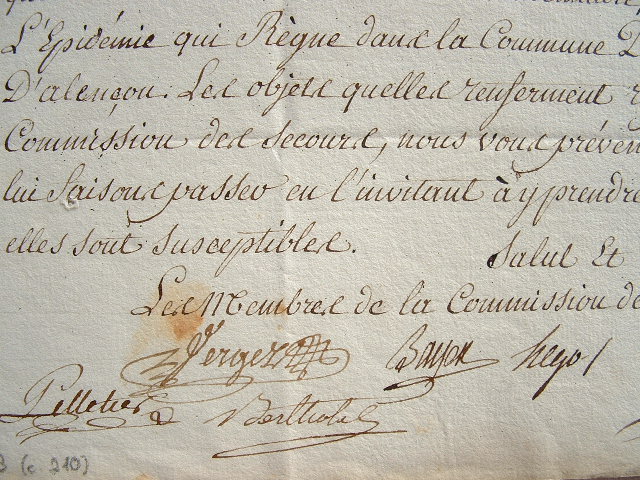 L'Epidémie qui Règne dans la Commune
D'alençon. Les objets quelles renferment
Commission des secours, nous vous préven
lui faisons passer en l'invitant à y prendre
elles sont susceptibles.
Salut Et
Les Membres de la Commission de
Berger
Bayen hego
Pelletier Bertholet
3 (c 210)